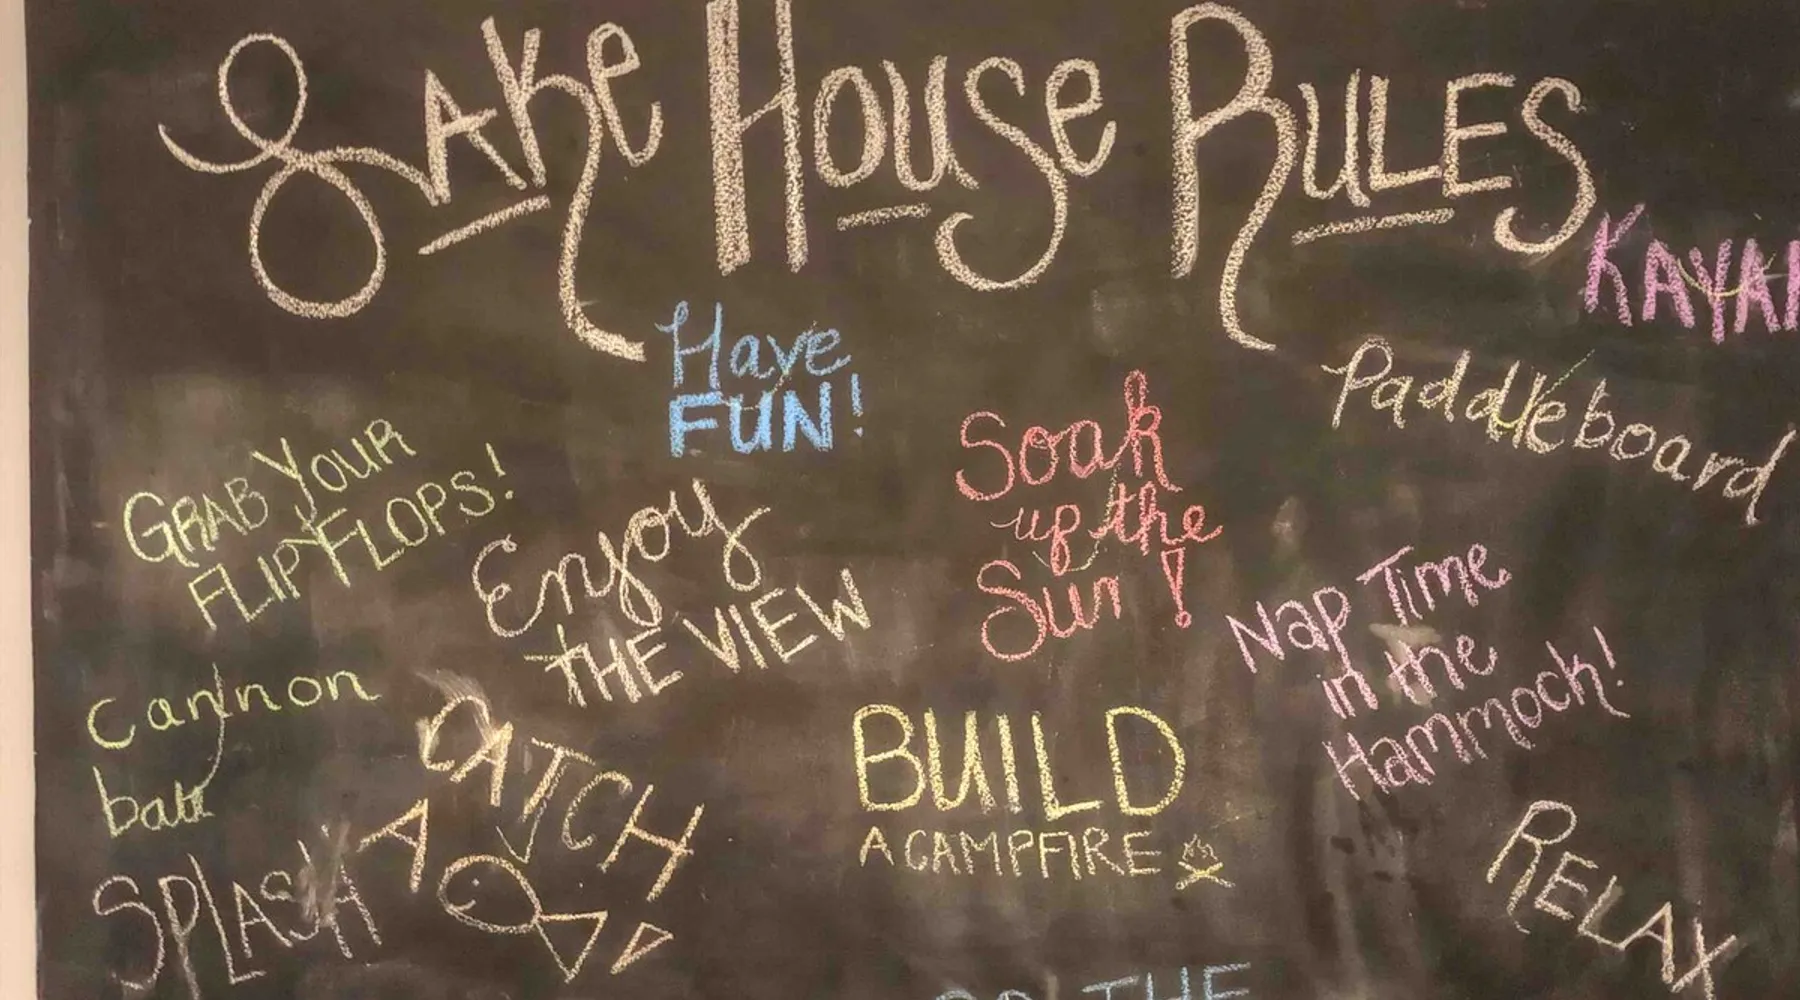 LAKe HOUSe RULES
KAYAK
Have
FUN!
Paddleboard
GRAB YOUR
FLIP FLOPS!
Enjoy
THE VIEW
Soak
up the
Sun!
Nap Time
in the
Hammock!
Cannon
ball
CATCH
A
BUILD
A CAMPFIRE
SPLASH
RELAX
THE